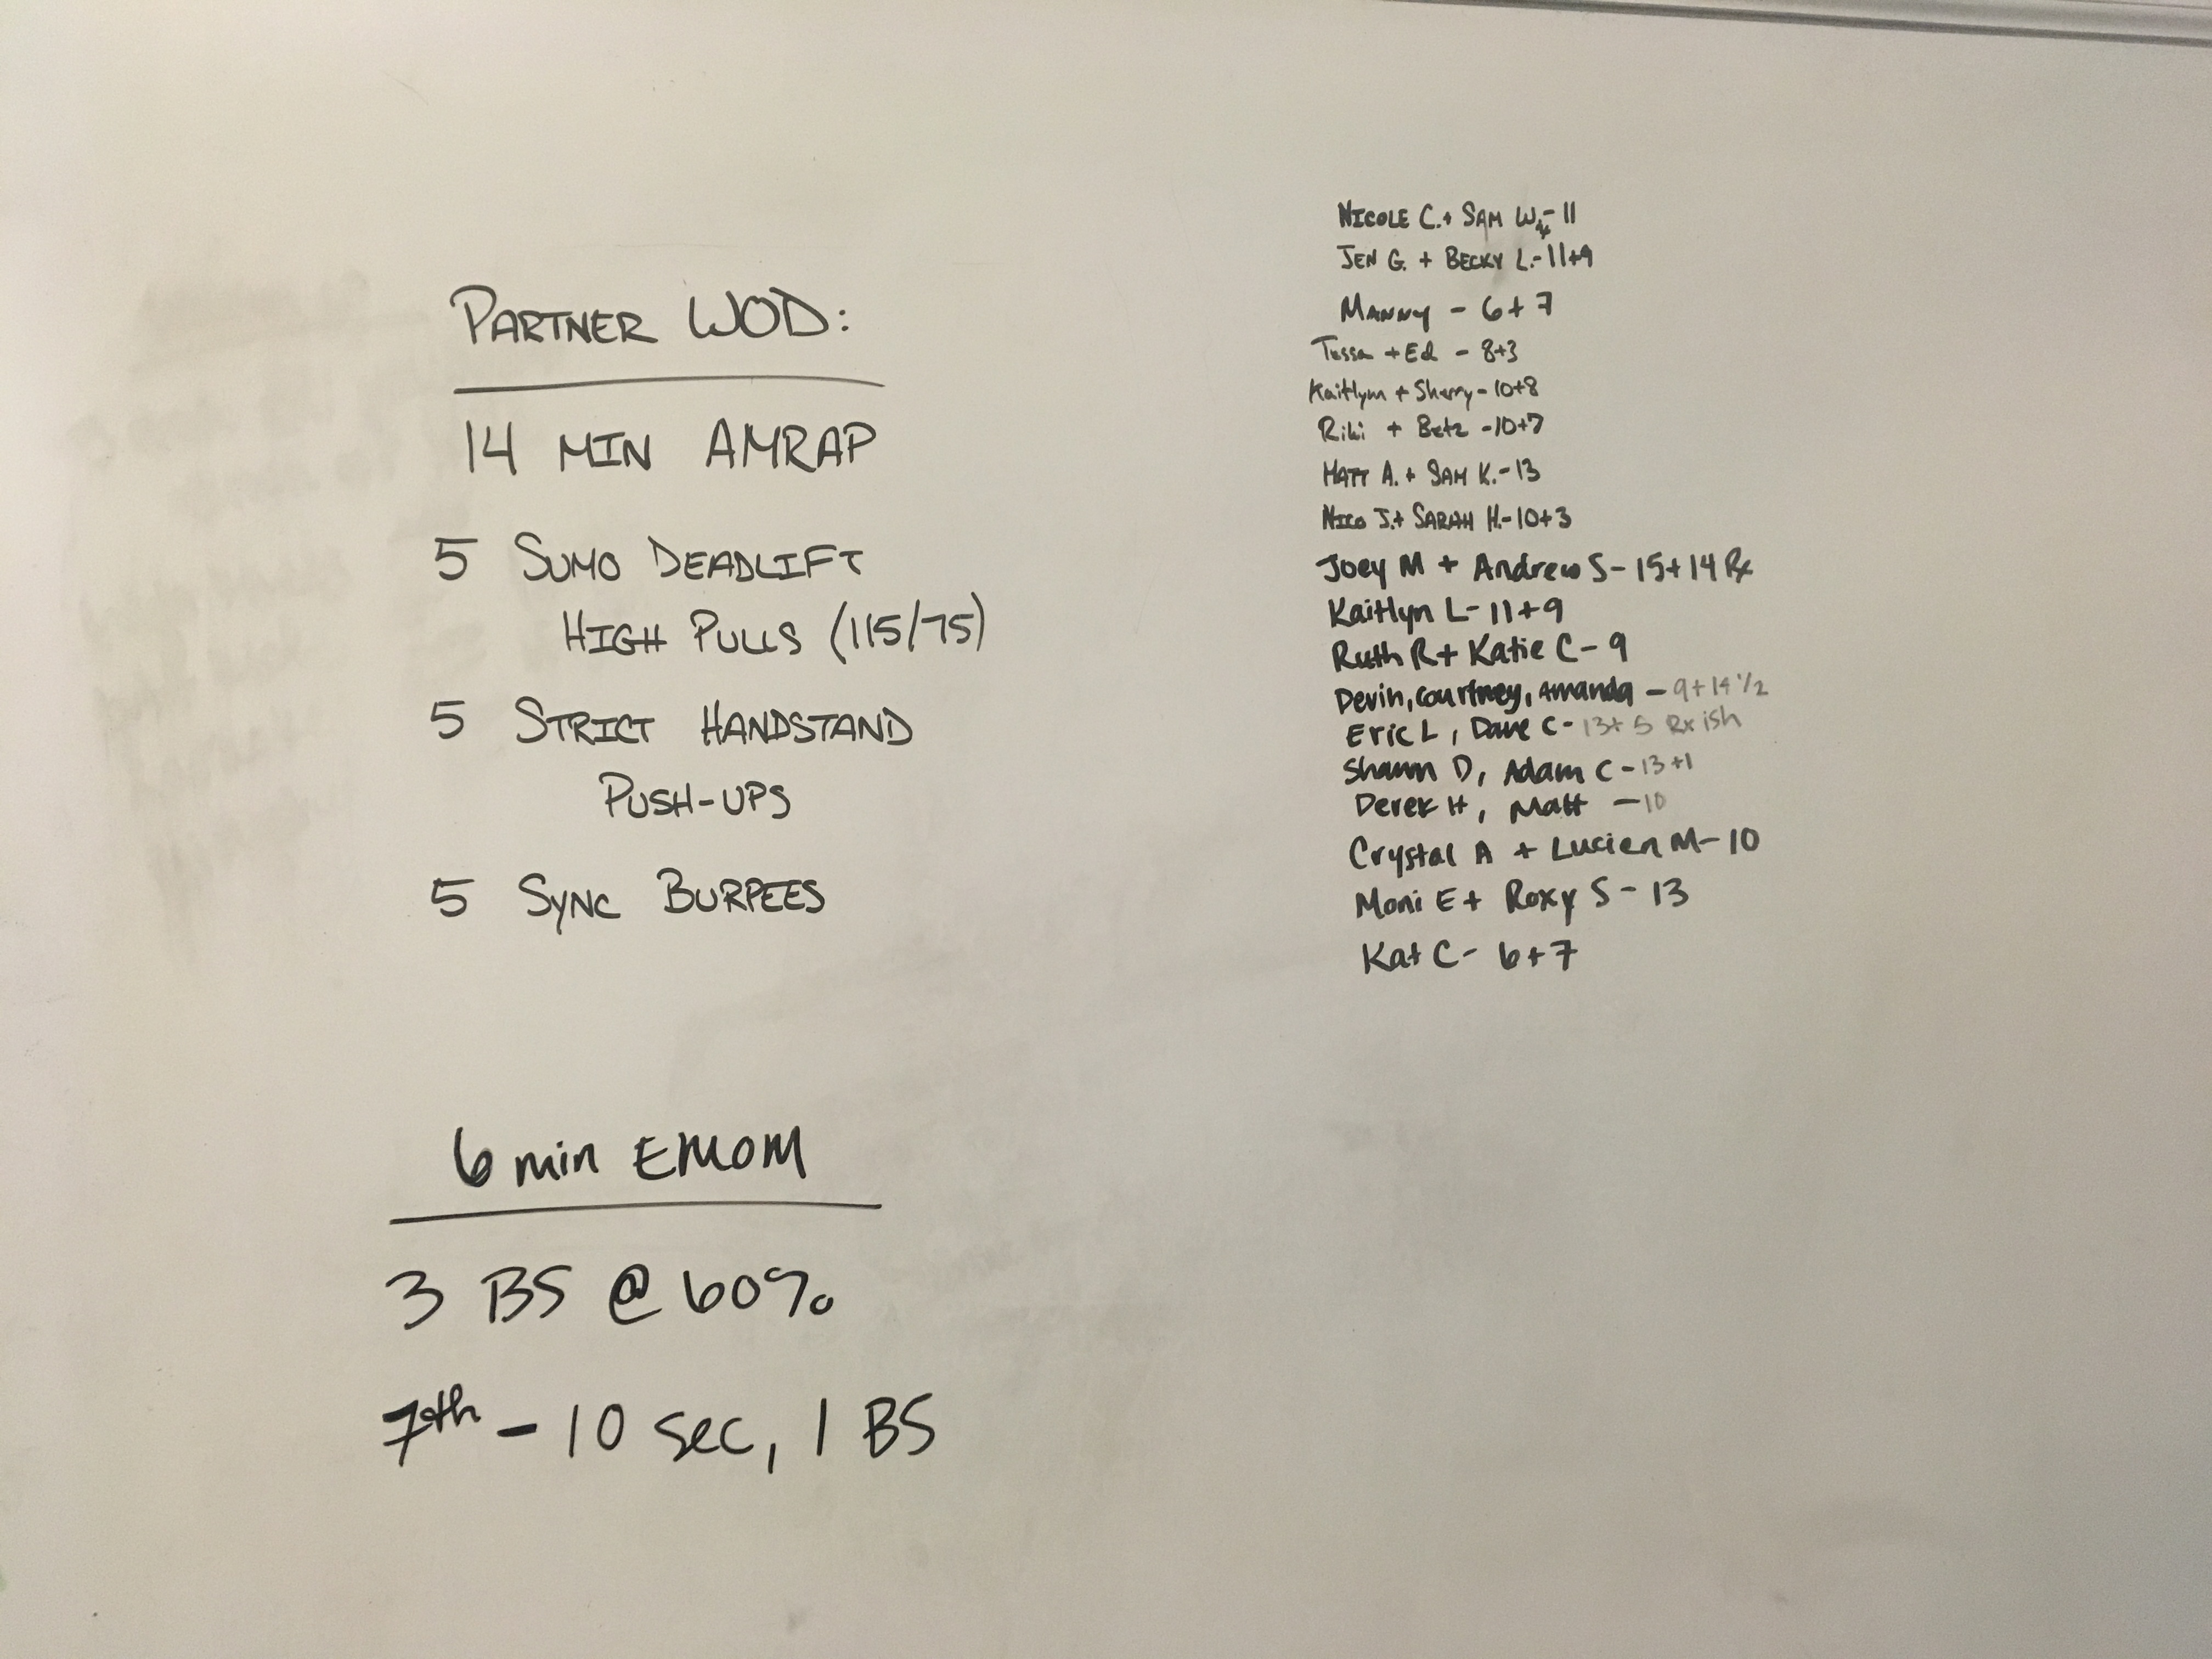 PARTNER WOD:
14 MIN AMRAP
5 SUMO DEADLIFT
HIGH PULLS (115/75)
5 STRICT HANDSTAND
PUSH-UPS
5 SYNC BURPEES
6 min EMOM
3 BS @ 60%
7th - 10 sec, 1 BS
NICOLE C. + SAM W. - 11
JEN G. + BECKY L. - 11+9
MANNY - 6+7
Tussa + Ed - 8+3
Kaitlym + Sherry - 10+8
Riki + Betz - 10+7
MATT A. + SAM K. - 13
NICO J. + SARAH H. - 10+3
Joey M + Andrew S - 15+14 Rx
Kaitlyn L - 11+9
Ruth R + Katie C - 9
Devin, Courtney, Amanda - 9+14 1/2
Eric L, Dave C - 13+5 Rx ish
Shawn D, Adam C - 13+1
Derek H, Matt - 10
Crystal A + Lucien M - 10
Moni E + Roxy S - 13
Kat C - 6+7